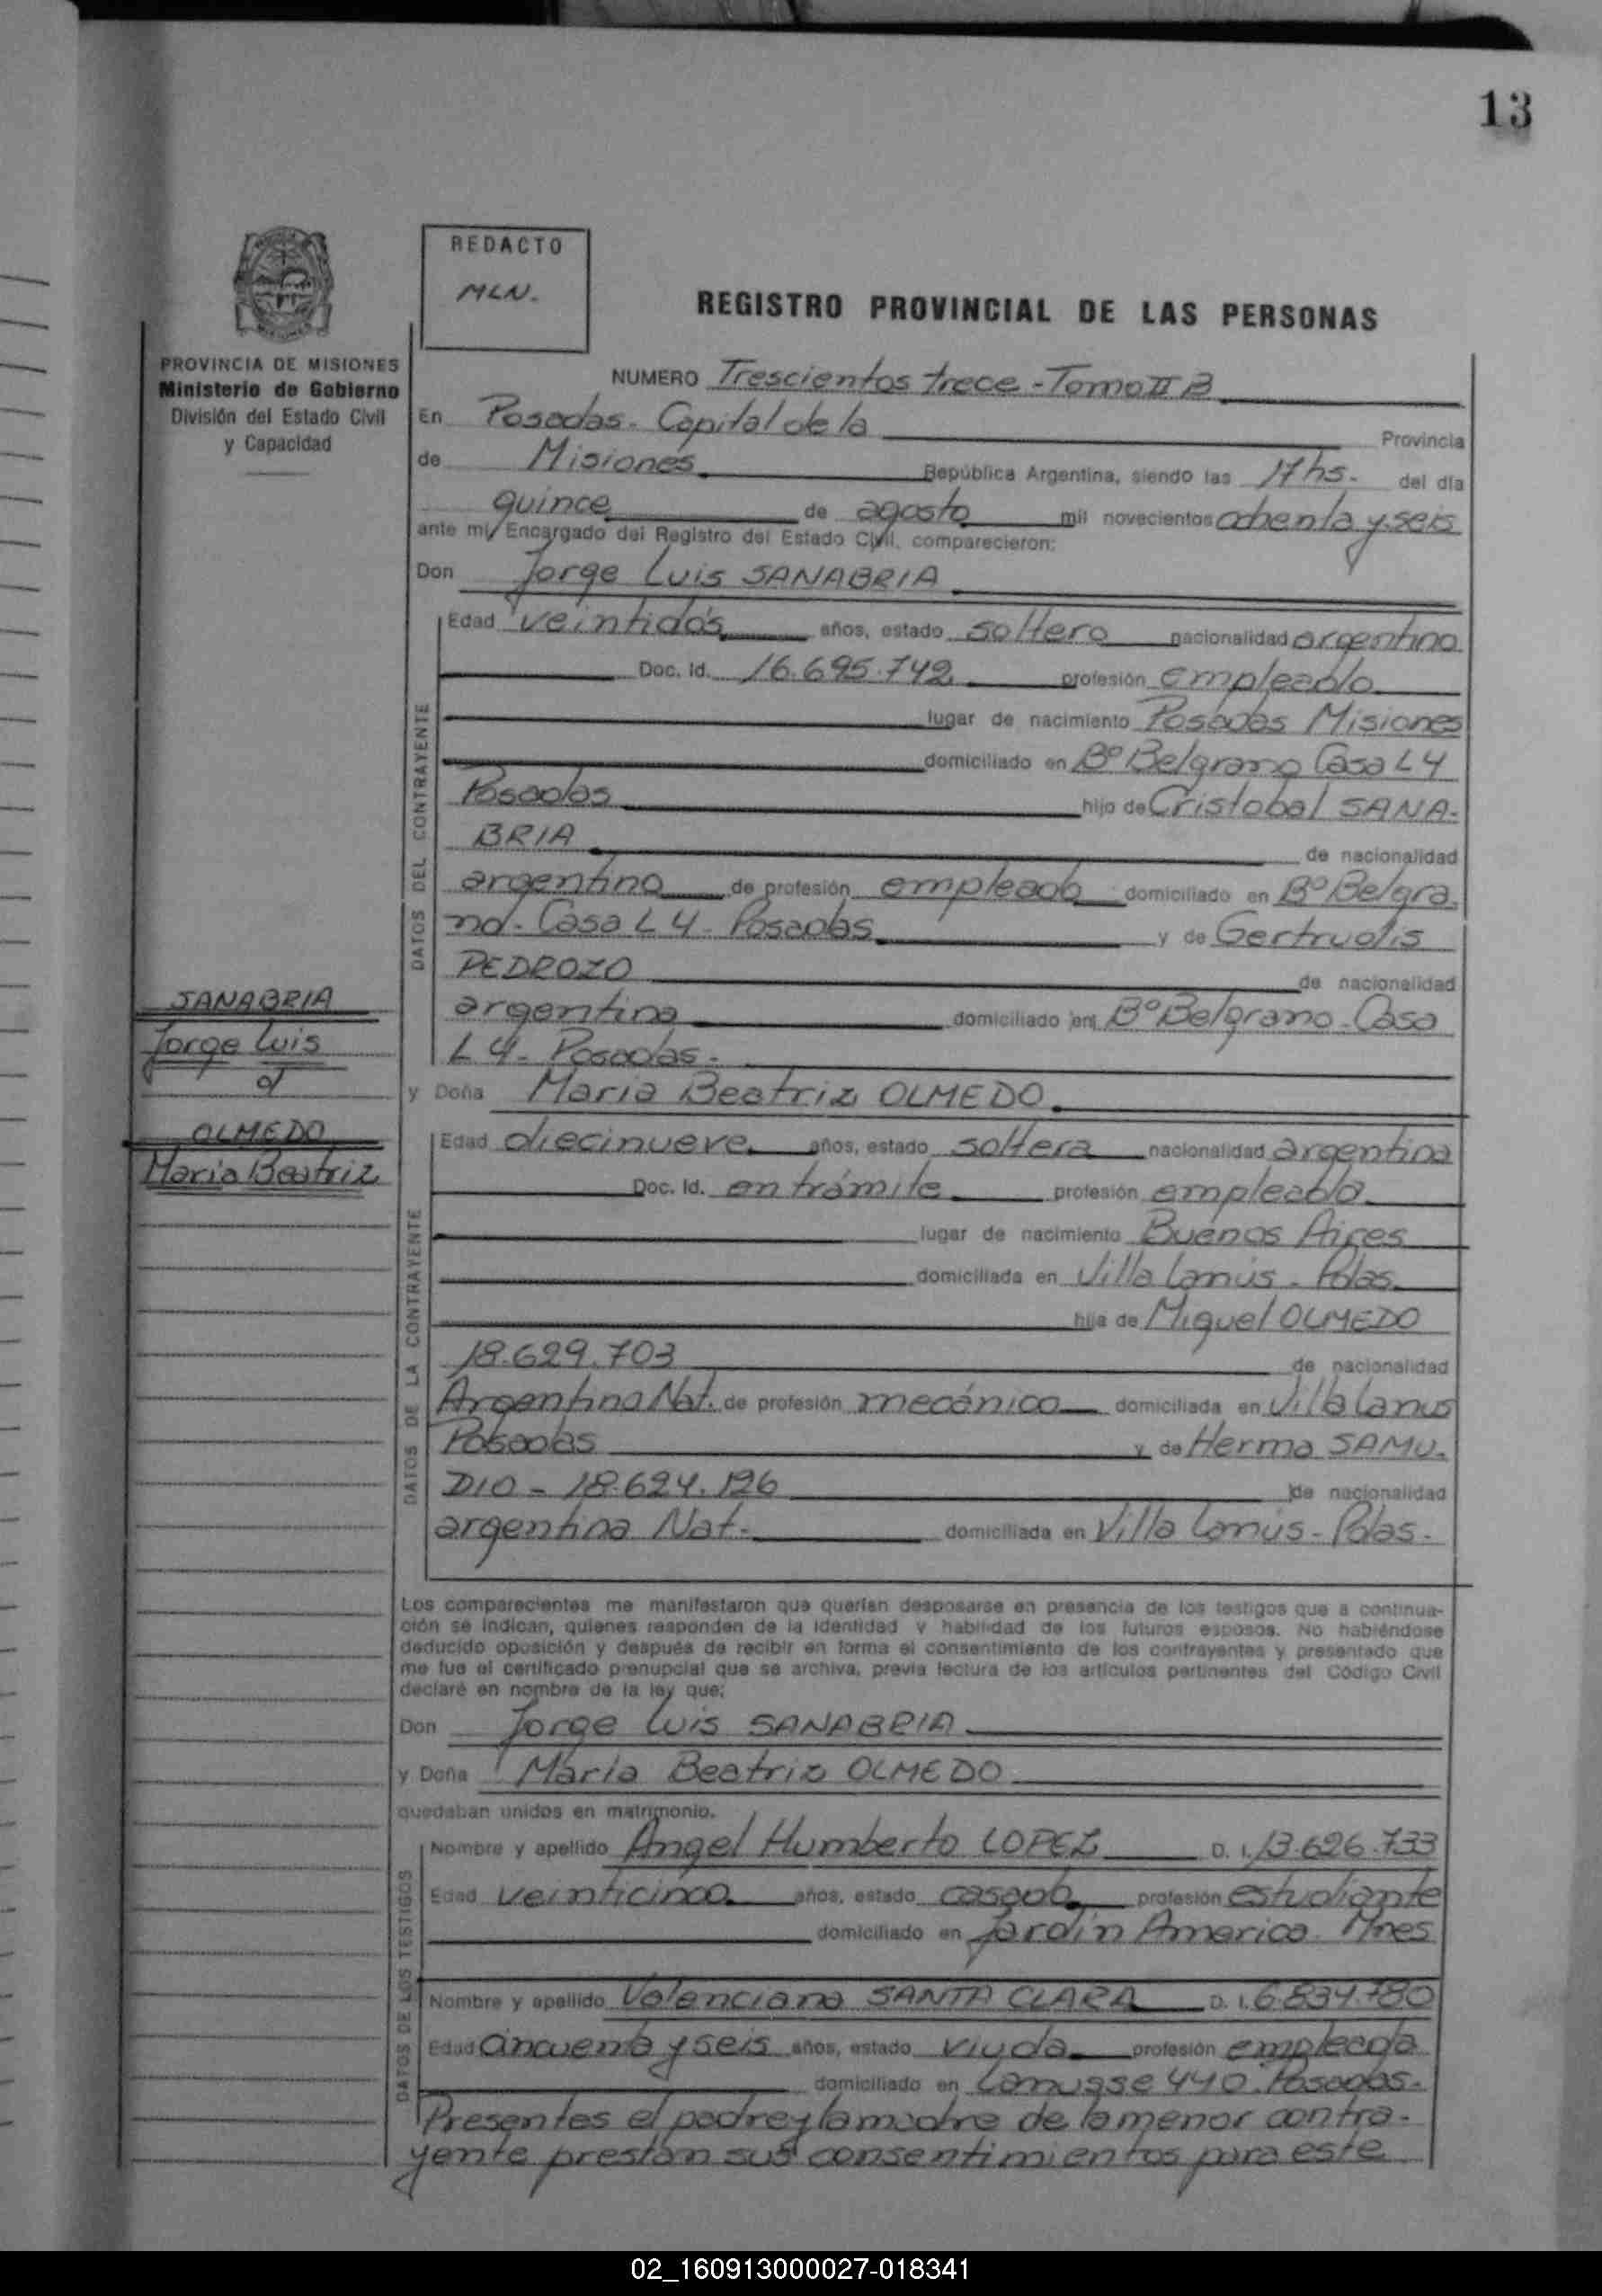 13
REDACTO
MLN.
REGISTRO PROVINCIAL DE LAS PERSONAS
PROVINCIA DE MISIONES
Ministerio de Gobierno
División del Estado Civil
y Capacidad
NUMERO Trescientos trece - Tomo II B
En Posadas. Capital de la Provincia
de Misiones República Argentina, siendo las 17 hs. del día
quince de agosto mil novecientos ochenta y seis
ante mi, Encargado del Registro del Estado Civil, comparecieron:
Don Jorge Luis SANABRIA
Edad veintidós años, estado soltero nacionalidad argentino
Doc. Id. 16.695.742 profesión empleado
lugar de nacimiento Posadas Misiones
domiciliado en Bº Belgrano Casa L 4
Posadas hijo de Cristobal SANA-
BRIA de nacionalidad
argentino de profesión empleado domiciliado en Bº Belgra.
no. Casa L 4 - Posadas y de Gertrudis
PEDROZO de nacionalidad
argentina domiciliado en Bº Belgrano - Casa
L 4 - Posadas.
DATOS DEL CONTRAYENTE
SANABRIA
Jorge Luis
OLMEDO
Maria Beatriz
y Doña Maria Beatriz OLMEDO
Edad diecinueve años, estado soltera nacionalidad argentina
Doc. Id. en trámite profesión empleada
lugar de nacimiento Buenos Aires
domiciliada en Villa Lanús - Pdas.
hija de Miguel OLMEDO
18.629.703 de nacionalidad
Argentino Nat. de profesión mecánico domiciliada en Villa Lanus
Posadas y de Herma SAMU.
DIO - 18.624.126 de nacionalidad
argentina Nat. domiciliada en Villa Lanús - Pdas.
DATOS DE LA CONTRAYENTE
Los comparecientes me manifestaron que querían desposarse en presencia de los testigos que a continua-
ción se indican, quienes responden de la identidad y habilidad de los futuros esposos. No habiéndose
deducido oposición y después de recibir en forma el consentimiento de los contrayentes y presentado que
me fue el certificado prenupcial que se archiva, previa lectura de los artículos pertinentes del Código Civil
declaré en nombre de la ley que:
Don Jorge Luis SANABRIA
y Doña Maria Beatriz OLMEDO
quedaban unidos en matrimonio.
Nombre y apellido Angel Humberto LOPEZ D. I. 13.626.733
Edad veinticinco años, estado casado profesión estudiante
domiciliado en Jardín America. Mnes
Nombre y apellido Valenciana SANTA CLARA D. I. 6.834.780
Edad cincuenta y seis años, estado viuda profesión empleada
domiciliado en Lanusse 440. Posadas.
DATOS DE LOS TESTIGOS
Presentes el padre y la madre de la menor contra-
yente prestan sus consentimientos para este
02_160913000027-018341